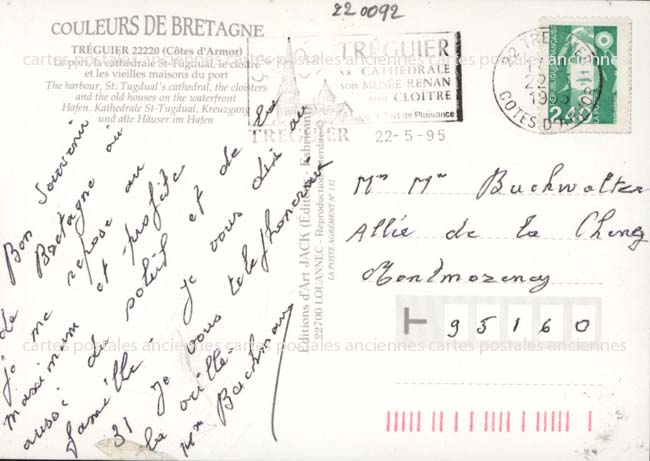 22 0092
COULEURS DE BRETAGNE
TRÉGUIER 22220 (Côtes d'Armor)
Le port, la cathédrale St-Tugdual, le cloître
et les vieilles maisons du port
The harbour, St. Tugdual's cathedral, the cloisters
and the old houses on the waterfront
Hafen, Kathedrale St-Tugdual, Kreuzgang
und alte Häuser im Hafen
TRÉGUIER
sa CATHÉDRALE
son MUSÉE RENAN
son CLOÎTRE
Port de Plaisance
TREGUIER
22-5-95
22 TREGUIER
COTES D'ARMOR
Bon souvenir
de Bretagne où
je me repose au
maximum et profite
aussi du soleil et de la
famille. Je vous dis au
31 je vous téléphonerai
la veille.
Mme Buchmann
Éditions d'Art JACK (Éditeur - Fabricant)
22700 LOUANNEC - Reproduction interdite
LA POSTE AGRÉMENT N° 112
Mr Mme Buchwalter
Allée de la
Montmorency
95160
cartes postales anciennes cartes postales anciennes cartes postales anciennes